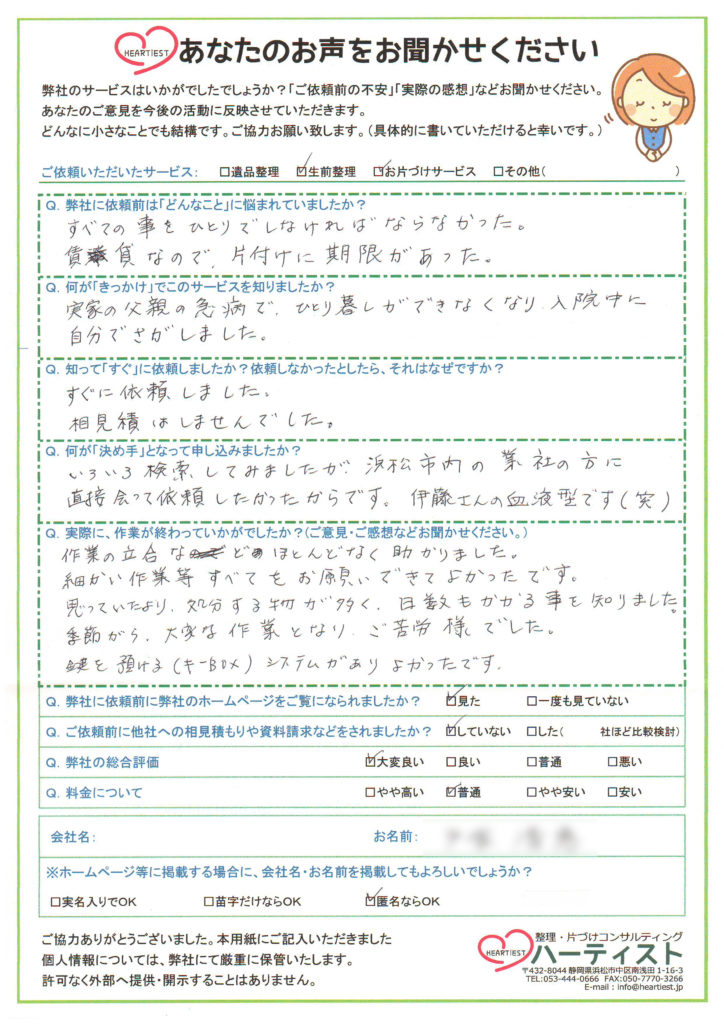 HEARTIEST あなたのお声をお聞かせください
弊社のサービスはいかがでしたでしょうか？「ご依頼前の不安」「実際の感想」などお聞かせください。
あなたのご意見を今後の活動に反映させていただきます。
どんなに小さなことでも結構です。ご協力お願い致します。（具体的に書いていただけると幸いです。）
ご依頼いただいたサービス： □遺品整理 ☑生前整理 ☑お片づけサービス □その他（ ）
Q. 弊社に依頼前は「どんなこと」に悩まれていましたか？
すべての事をひとりでしなければならなかった。
賃貸なので、片付けに期限があった。
Q. 何が「きっかけ」でこのサービスを知りましたか？
実家の父親の急病で、ひとり暮しができなくなり、入院中に
自分でさがしました。
Q. 知って「すぐ」に依頼しましたか？依頼しなかったとしたら、それはなぜですか？
すぐに依頼しました。
相見積はしませんでした。
Q. 何が「決め手」となって申し込みましたか？
いろいろ検索してみましたが、浜松市内の業社の方に
直接会って依頼したかったからです。伊藤さんの血液型です（笑）
Q. 実際に、作業が終わっていかがでしたか？（ご意見・ご感想などお聞かせください。）
作業の立合などほとんどなく助かりました。
細かい作業等すべてをお願いできてよかったです。
思っていたより、処分する物が多く、日数もかかる事を知りました。
季節がら、大変な作業となり、ご苦労様でした。
鍵を預ける（キーBOX）システムがありよかったです。
Q. 弊社に依頼前に弊社のホームページをご覧になられましたか？ ☑見た □一度も見ていない
Q. ご依頼前に他社への相見積もりや資料請求などをされましたか？ ☑していない □した（ 社ほど比較検討）
Q. 弊社の総合評価 ☑大変良い □良い □普通 □悪い
Q. 料金について □やや高い ☑普通 □やや安い □安い
会社名： お名前：
※ホームページ等に掲載する場合に、会社名・お名前を掲載してもよろしいでしょうか？
□実名入りでOK □苗字だけならOK ☑匿名ならOK
ご協力ありがとうございました。本用紙にご記入いただきました
個人情報については、弊社にて厳重に保管いたします。
許可なく外部へ提供・開示することはありません。
整理・片づけコンサルティング
HEARTIEST ハーティスト
〒432-8044 静岡県浜松市中区南浅田 1-16-3
TEL:053-444-0666 FAX:050-7770-3266
E-mail : info@heartiest.jp